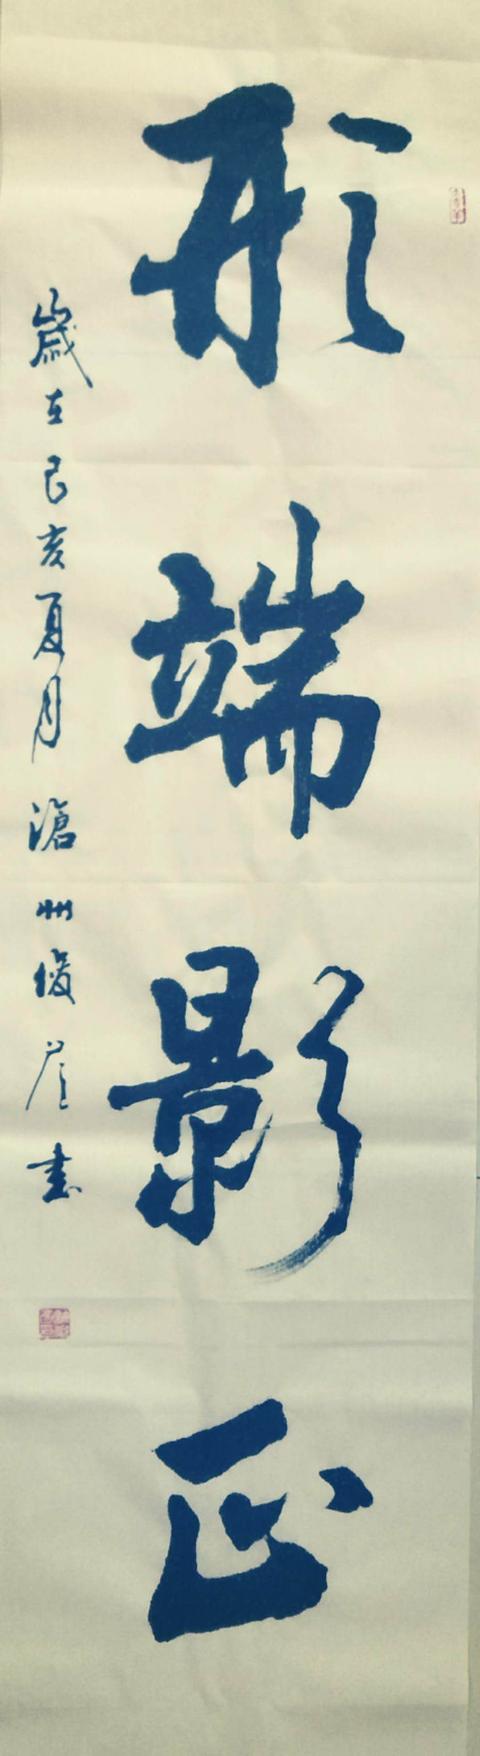 形端影正
歲在己亥夏月滄州俊崖書